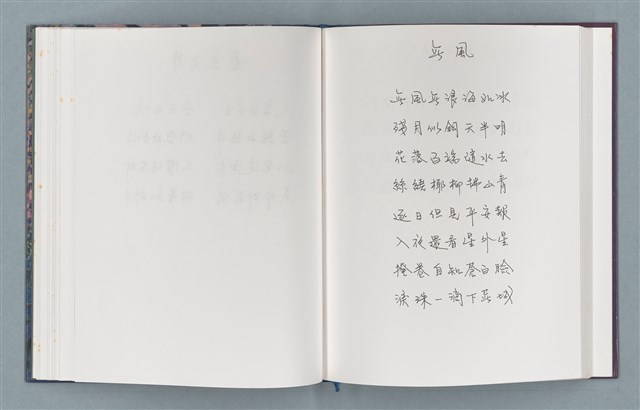 無風
無風無浪海如冰
殘月似鉤天半明
花落隨水去
絲繞椰柳拂山青
逐日但見平安報
入夜還看星外星
掩卷自知蒼白臉
淚珠一滴下蕪城